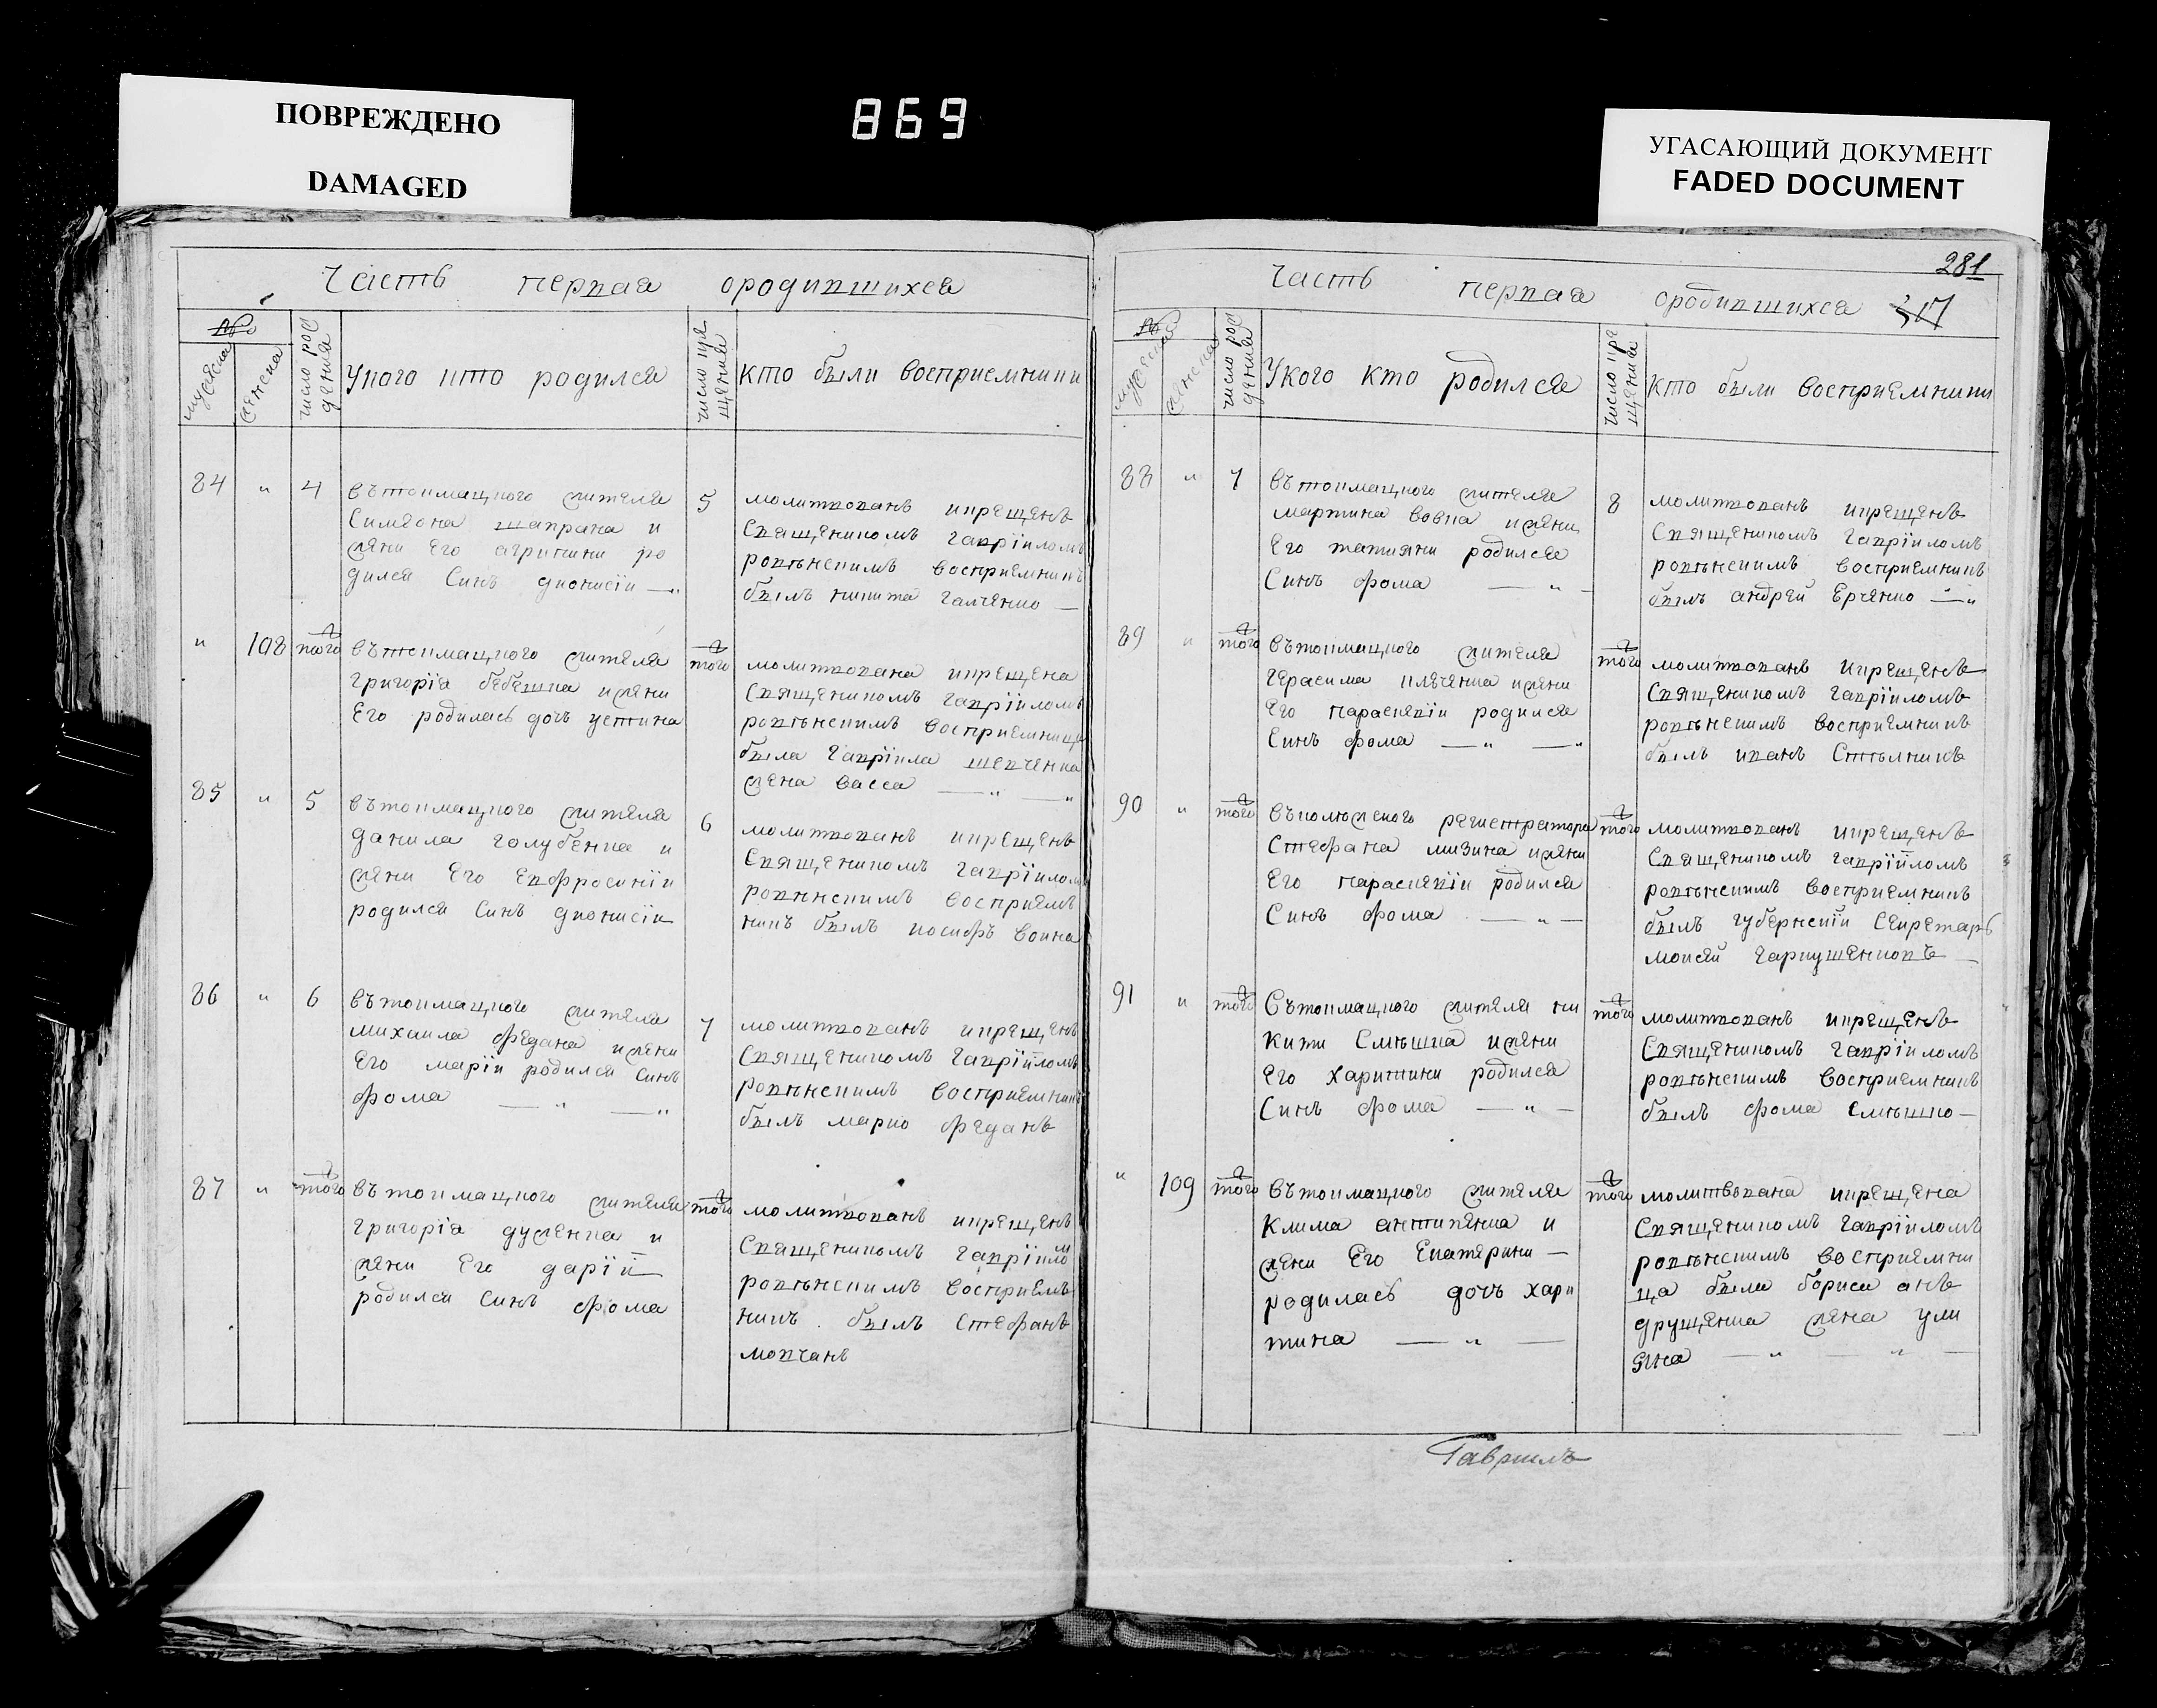 ПОВРЕЖДЕНО
DAMAGED
869
УГАСАЮЩИЙ ДОКУМЕНТ
FADED DOCUMENT
Часть первая ородившихся
№
мужеска
женска
число рож
дения
У кого кто родился
число кре
щения
кто были восприемники
84 " 4
въ токмацкого жителя
Симеона шаврана и
жени Его агрипини ро
дился Синъ дионисіи
5
молитвованъ икрещенъ
Священикомъ гавріиломъ
ровѣнскимъ восприемникъ
былъ никита галченко
" 108 того ж
въ токмацкого жителя
григорія бебешка ижени
Его родилась дочъ устина
того ж
молитвована икрещена
Священикомъ гавріиломъ
ровѣнскимъ восприемница
была гавріила шевченка
жена васса
85 " 5
въ токмацкого жителя
данила голубенка и
жени Его Евфросиніи
родился Синъ дионисіи
6
молитвованъ икрещенъ
Священикомъ гавріиломъ
ровѣнскимъ восприем
никъ былъ иосифъ воина
86 " 6
въ токмацкого жителя
михаила федана ижени
Его маріи родился Синъ
фома
7
молитвованъ икрещенъ
Священикомъ гавріиломъ
ровѣнскимъ восприемникъ
былъ марко феданъ
87 " того ж
въ токмацкого жителя
григорія дуженка и
жени Его даріи
родился Синъ фома
того ж
молитвованъ икрещенъ
Священикомъ гавріилом
ровѣнскимъ восприем
никъ былъ Стефанъ
мовчанъ
281
Часть первая ородившихся 317
№
мужеска
женска
число рож
дения
У кого кто родился
число кре
щения
кто были восприемники
88 " 7
въ токмацкого жителя
мартина вовка ижени
Его татияни родился
Синъ фома
8
молитвованъ икрещенъ
Священикомъ гавріиломъ
ровѣнскимъ восприемникъ
былъ андрей Ерченко
89 " того ж
въ токмацкого жителя
герасима кличенка ижени
Его параскевіи родился
Синъ фома
того ж
молитвованъ икрещенъ
Священикомъ гавріиломъ
ровѣнскимъ восприемникъ
былъ иванъ Стѣлникъ
90 " того ж
въ колюжского регистратора
Стефана мизина ижени
Его параскевіи родился
Синъ фома
того ж
молитвованъ икрещенъ
Священикомъ гавріиломъ
ровѣнскимъ восприемникъ
былъ губернскіи Секретаръ
моисей гаркушенковъ
91 " того ж
Въ токмацкого жителя ни
кити Смѣшка ижени
Его харитини родился
Синъ фома
того ж
молитвованъ икрещенъ
Священикомъ гавріиломъ
ровѣнскимъ восприемникъ
былъ фома Смѣшко
" 109 того ж
въ токмацкого жителя
Клима антипенка и
жени Его Екатерини
родилась дочъ хари
тина
того ж
молитвована икрещена
Священикомъ гавріиломъ
ровѣнскимъ восприемни
ца были бориса анъ
друщенка жена ули
яна
Гавриилъ